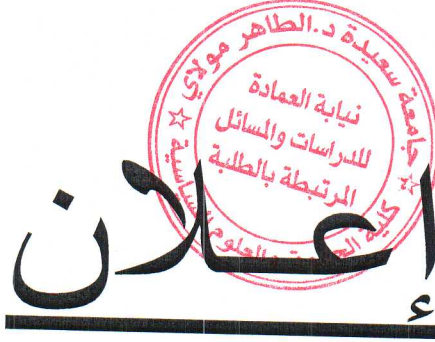 جامعة سعيدة د.الطاهر مولاي
نيابة العمادة
للدراسات والمسائل
المرتبطة بالطلبة
كلية الحقوق والعلوم السياسية
إعلان